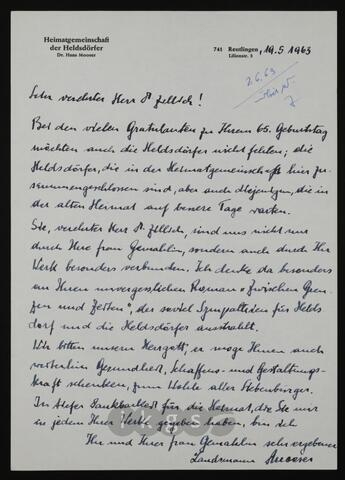 Heimatgemeinschaft
der Heldsdörfer
Dr. Hans Mooser
741 Reutlingen, 19.5.1963
Lilienstr. 5
2.6.63
Sehr verehrter Herr Dr. Zillich!
Bei den vielen Gratulanten zu Ihrem 65. Geburtstag
möchten auch die Heldsdörfer nicht fehlen; die
Heldsdörfer, die in der Heimatgemeinschaft hier zu-
sammengeschlossen sind, aber auch diejenigen, die in
der alten Heimat auf bessere Tage warten.
Sie, verehrter Herr Dr. Zillich, sind uns nicht nur
durch Ihre Frau Gemahlin, sondern auch durch Ihr
Werk besonders verbunden. Ich denke da besonders
an Ihren unvergesslichen Roman "Zwischen Gren-
zen und Zeiten", der soviel Sympathien für Helds-
dorf und die Heldsdörfer ausstrahlt.
Wir bitten unsern Herrgott, er möge Ihnen auch
weiterhin Gesundheit, Schaffens- und Gestaltungs-
kraft schenken, zum Wohle aller Siebenbürger.
In tiefer Dankbarkeit für die Heimat, die Sie mir
in jedem Ihrer Werke gegeben haben, bin ich
Ihr und Ihrer Frau Gemahlin sehr ergebener
Landsmann Mooser